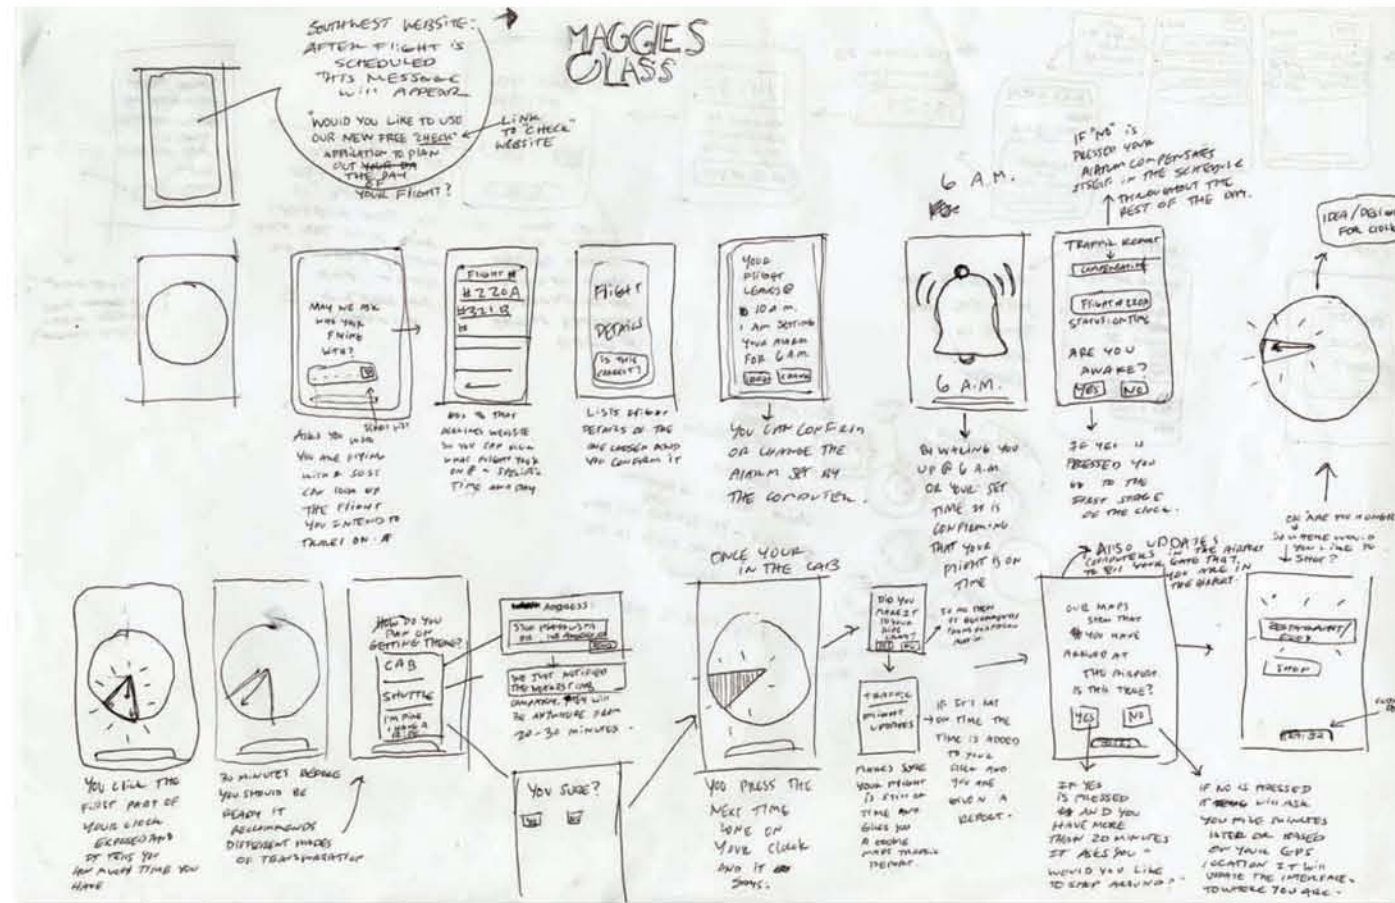 SOUTHWEST WEBSITE:
AFTER FLIGHT IS
SCHEDULED
THIS MESSAGE
WILL APPEAR
"WOULD YOU LIKE TO USE
OUR NEW FREE "CHECK"
APPLICATION TO PLAN
OUT YOUR DA
THE DAY
OF
YOUR FLIGHT?
LINK
TO "CHECK"
WEBSITE
MAGGIES
CLASS
MAY WE ASK
WHO YOUR
FLYING
WITH?
ASKS YOU WHO
YOU ARE FLYING
WITH & SO IT
CAN LOOK UP
THE FLIGHT
YOU INTEND TO
TRAVEL ON.
FLIGHT #
#220A
#321B
#
WEBSITE
SO YOU CAN
WHAT FLIGHT YOUR
ON @ A SPECIFIC
TIME AND DAY
FLIGHT
DETAILS
IS THIS
CORRECT?
LISTS FLIGHT
DETAILS OF THE
ONE CHOSEN AND
YOU CONFIRM IT
YOUR
FLIGHT
LEAVES @
10 A.M.
I AM SETTING
YOUR ALARM
FOR 6 A.M.
CHANGE
YOU CAN CONFIRM
OR CHANGE THE
ALARM SET BY
THE COMPUTER.
6 A.M.
6 A.M.
BY WAKING YOU
UP @ 6 A.M.
OR YOUR SET
TIME IT IS
CONFIRMING
THAT YOUR
FLIGHT IS ON
TIME
IF "NO" IS
PRESSED YOUR
ALARM COMPENSATES
ITSELF IN THE SCHEDULE
THROUGHOUT THE
REST OF THE DAY.
TRAFFIC REPORT
FLIGHT # 220A
STATUS: ON TIME
ARE YOU
AWAKE?
YES NO
IF YES IS
PRESSED YOU
GO TO THE
FIRST STAGE
OF THE CLOCK.
IDEA/DESIGN
FOR CLOCK
YOU CLICK THE
FIRST PART OF
YOUR CLOCK
EXPOSED AND
IT TELLS YOU
HOW MUCH TIME YOU
HAVE
30 MINUTES BEFORE
YOU SHOULD BE
READY IT
RECOMMENDS
DIFFERENT MODES
OF TRANSPORTATION
HOW DO YOU
PLAN ON
GETTING THERE?
CAB
SHUTTLE
I'M FINE
I HAVE A
ADDRESS:
WE JUST NOTIFIED
COMPANY. THEY WILL
BE ANYWHERE FROM
20-30 MINUTES.
YOU SURE?
ONCE YOUR
IN THE CAB
YOU PRESS THE
NEXT TIME
ZONE ON
YOUR CLOCK
AND IT
SAYS:
DID YOU
MAKE IT
TO YOUR
TRAFFIC
FLIGHT
UPDATES
MAKES SURE
YOUR FLIGHT
IS STILL ON
TIME AND
GIVES YOU
A GOOGLE
MAPS TRAFFIC
REPORT.
IF IT'S NOT
ON TIME THE
TIME IS ADDED
TO YOUR
CLOCK AND
YOU ARE
GIVEN A
REPORT.
ALSO UPDATES
COMPUTERS IN THE AIRPORT
YOUR GATE THAT
YOU ARE IN
THE AIRPORT.
OUR MAPS
SHOW THAT
YOU HAVE
ARRIVED AT
THE AIRPORT.
IS THIS TRUE?
YES NO
IF YES
IS PRESSED
AND YOU
HAVE MORE
THAN 20 MINUTES
IT ASKS YOU "
WOULD YOU LIKE
TO SHOP AROUND?"
IF NO IS PRESSED
IT WILL ASK
YOU FIVE MINUTES
LATER OR BASED
ON YOUR GPS
LOCATION IT WILL
UPDATE THE INTERFACE
TO WHERE YOU ARE.
SO WHERE WOULD
YOU LIKE TO
SHOP?
RESTAURANT/
FOOD
SHOP